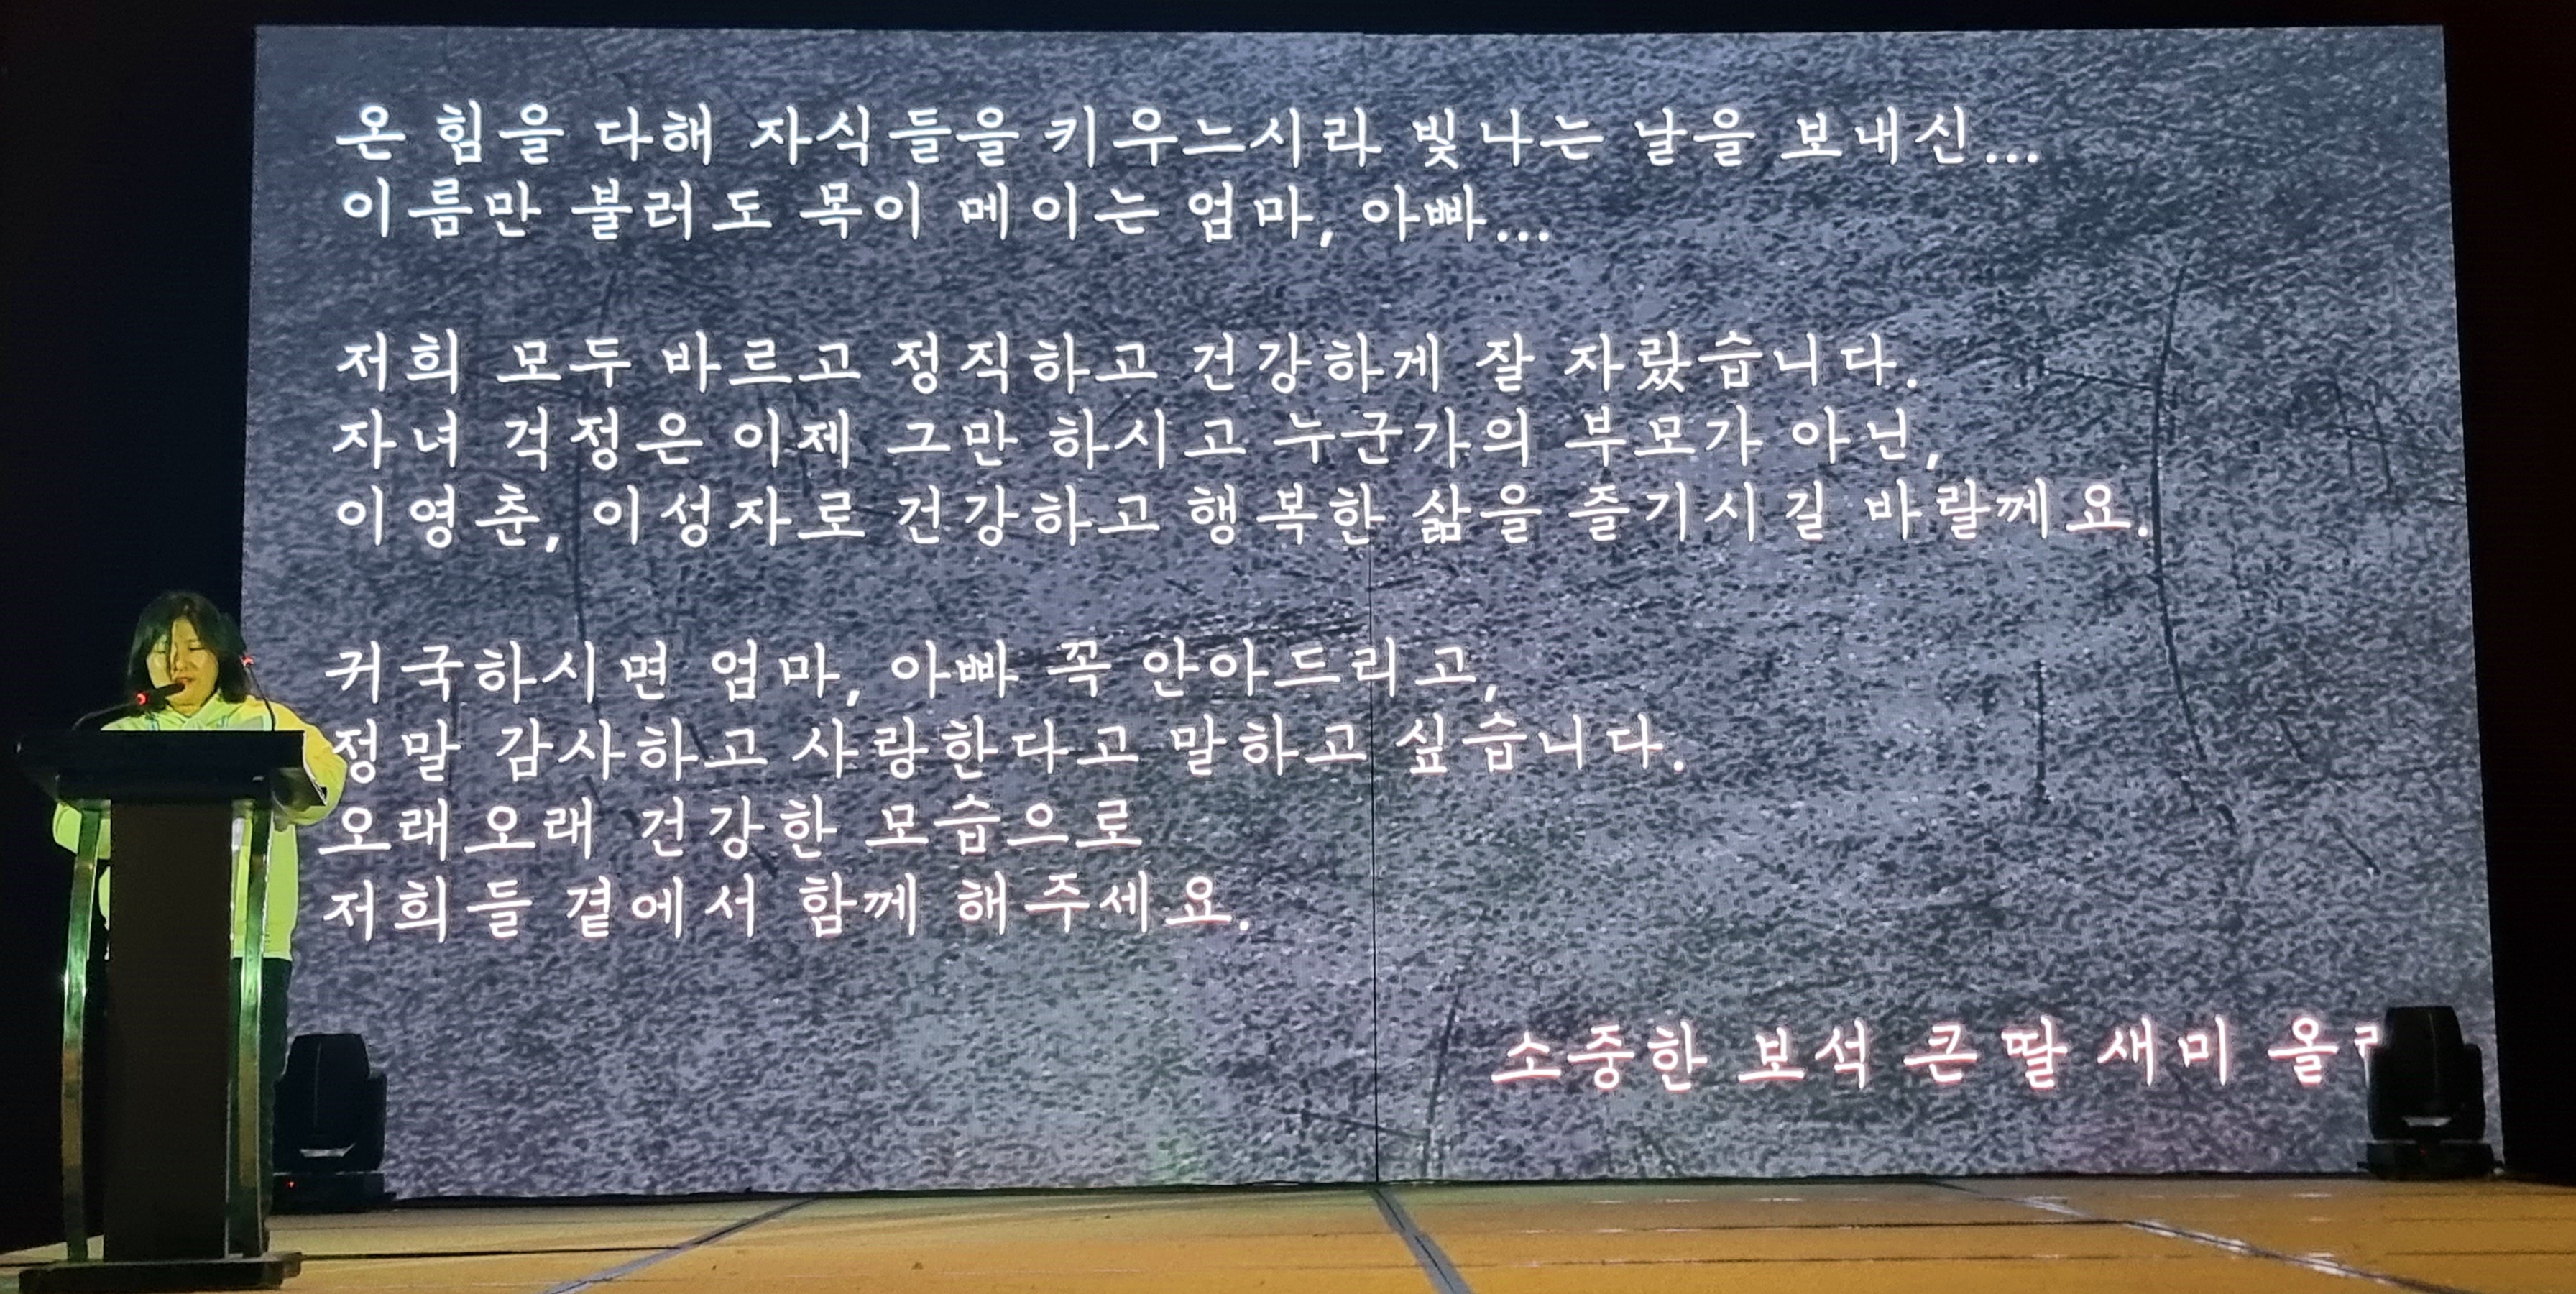 온 힘을 다해 자식들을 키우느시라 빛나는 날을 보내신...
이름만 불러도 목이 메이는 엄마, 아빠...
저희 모두 바르고 정직하고 건강하게 잘 자랐습니다.
자녀 걱정은 이제 그만 하시고 누군가의 부모가 아닌,
이영춘, 이성자로 건강하고 행복한 삶을 즐기시길 바랄께요.
귀국하시면 엄마, 아빠 꼭 안아드리고,
정말 감사하고 사랑한다고 말하고 싶습니다.
오래오래 건강한 모습으로
저희들 곁에서 함께 해주세요.
소중한 보석 큰딸 새미